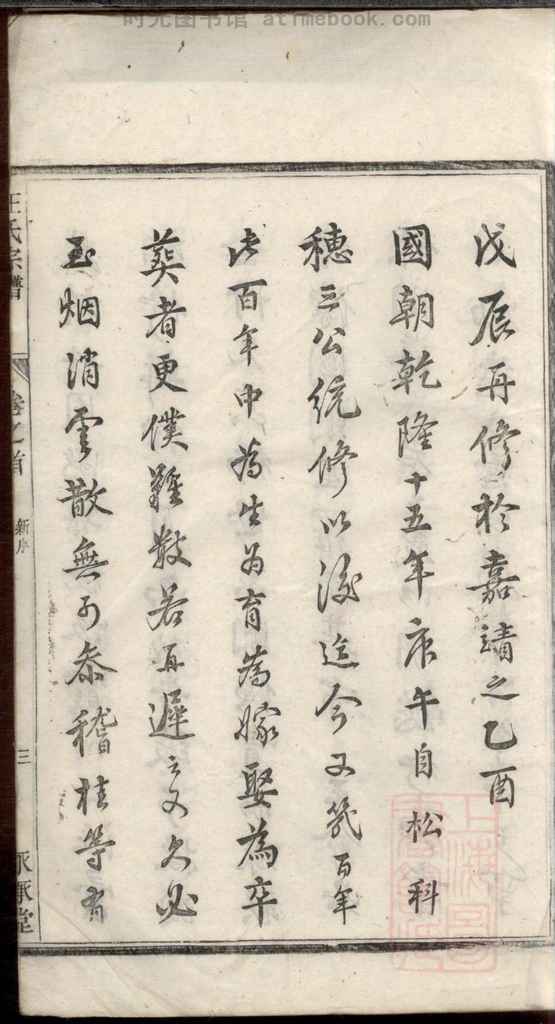 时光图书馆 atimebook.com
戊辰再修於嘉靖之乙酉
國朝乾隆十五年庚午自松科
穗三公統修以後迄今又幾百年
此百年中為生為育為嫁娶為卒
葬者更僕難數若再遲之又久必
至烟消雲散無可叅稽桂等有
王氏宗譜
卷之首
新序
三
承堂